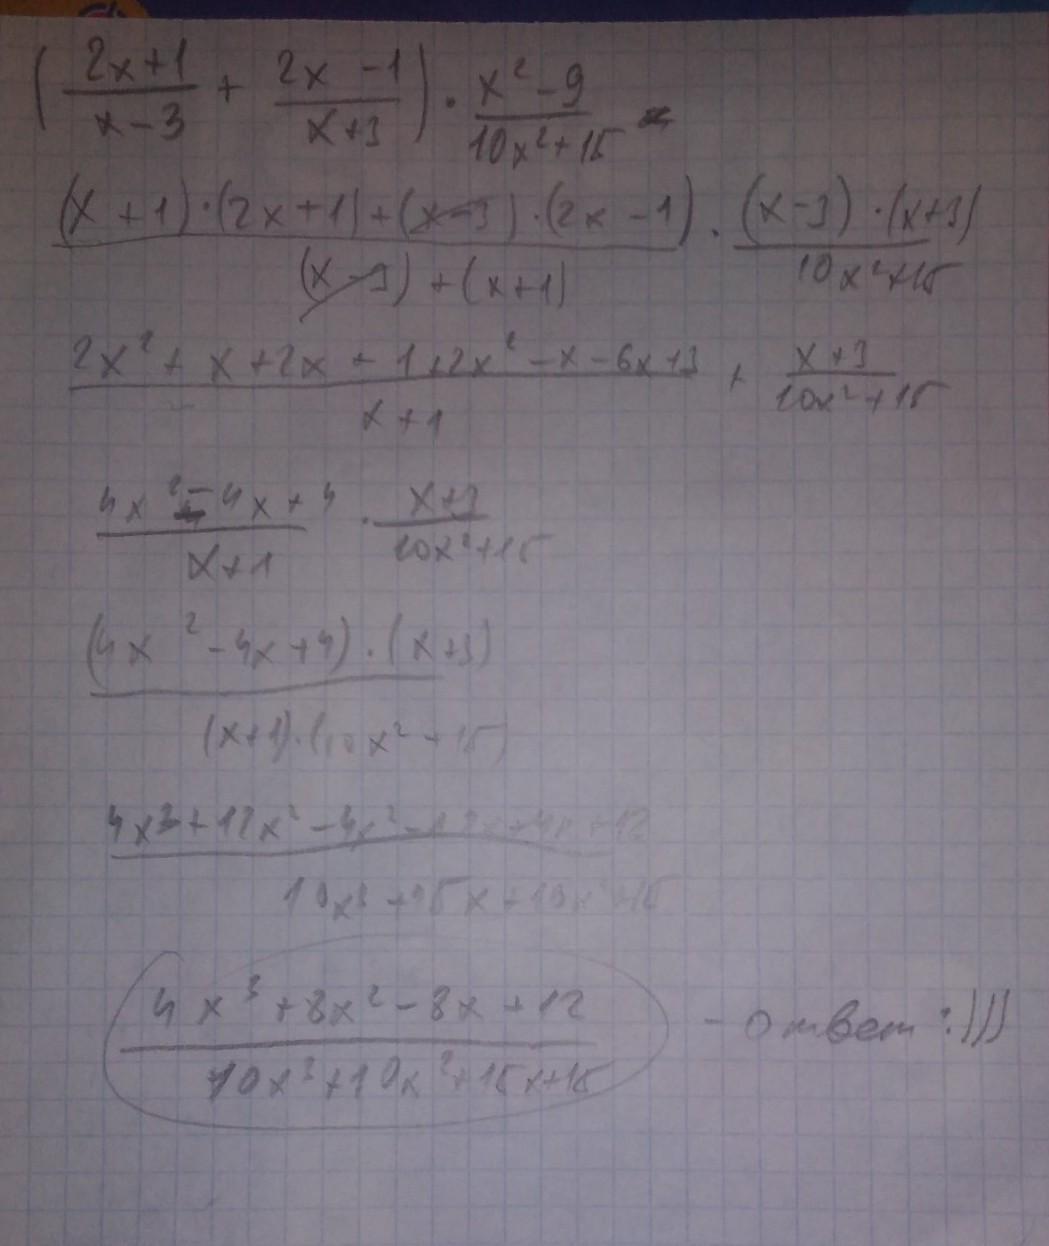 (2x+1/x-3 + 2x-1/x+3) · x²-9/10x²+15 =
(x+1)·(2x+1)+(x-3)·(2x-1)/(x-3)+(x+1) · (x-3)·(x+3)/10x²+15
2x²+x+2x+1+2x²-x-6x+3/x+1 · x+3/10x²+15
4x²-4x+4/x+1 · x+3/10x²+15
(4x²-4x+4)·(x+3)/(x+1)·(10x²+15)
4x³+12x²-4x²-12x+4x+12/10x³+15x+10x²+15
4x³+8x²-8x+12/10x³+10x²+15x+15 - ответ :)))